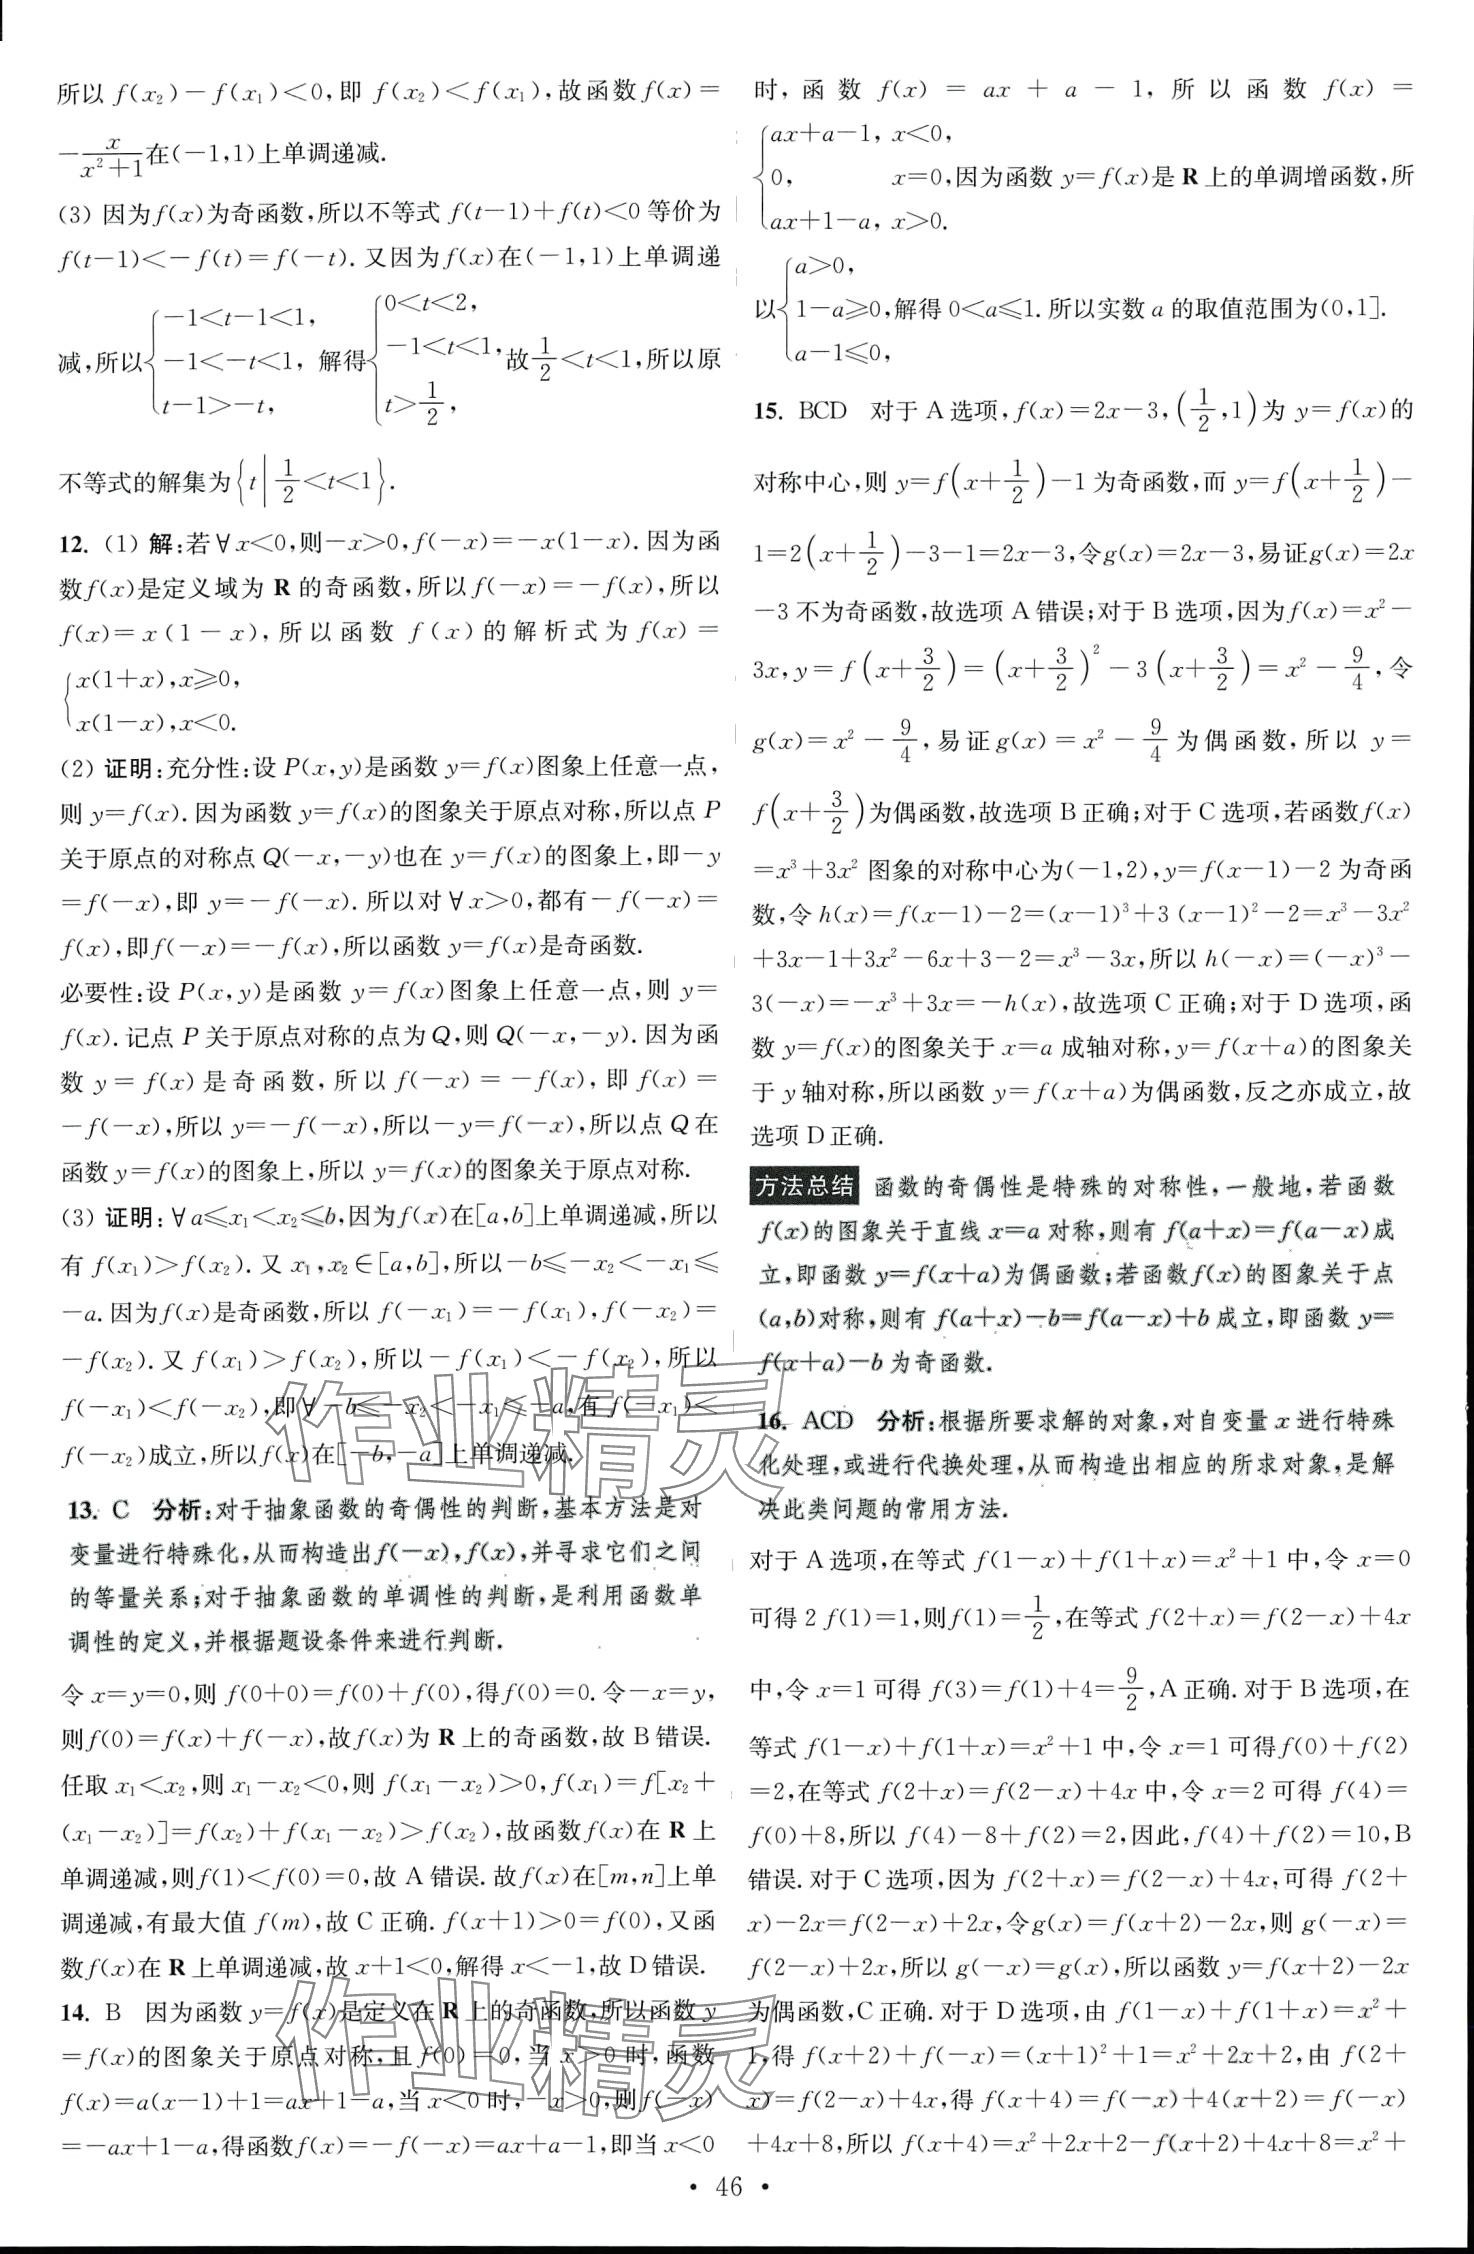 所以 f(x₂)－f(x₁)＜0,即 f(x₂)＜f(x₁),故函数f(x)＝
－x/(x²＋1)在(－1,1)上单调递减.
(3) 因为f(x)为奇函数,所以不等式 f(t－1)＋f(t)＜0等价为
f(t－1)＜－f(t)＝f(－t).又因为f(x)在(－1,1)上单调递
减,所以{－1＜t－1＜1, －1＜－t＜1, t－1＞－t, 解得{0＜t＜2, －1＜t＜1, t＞1/2, 故1/2＜t＜1,所以原
不等式的解集为{t|1/2＜t＜1}.
12. (1) 解:若∀x＜0,则－x＞0,f(－x)＝－x(1－x).因为函
数f(x)是定义域为 R 的奇函数,所以f(－x)＝－f(x),所以
f(x)＝x(1－x),所以函数 f(x)的解析式为f(x)＝
{x(1＋x),x≥0,
x(1－x),x＜0.
(2) 证明:充分性:设P(x,y)是函数y＝f(x)图象上任意一点,
则y＝f(x).因为函数y＝f(x)的图象关于原点对称,所以点P
关于原点的对称点Q(－x,－y)也在y＝f(x)的图象上,即－y
＝f(－x),即y＝－f(－x).所以对∀x＞0,都有－f(－x)＝
f(x),即f(－x)＝－f(x),所以函数y＝f(x)是奇函数.
必要性:设P(x,y)是函数y＝f(x)图象上任意一点,则y＝
f(x).记点P关于原点对称的点为Q,则Q(－x,－y).因为函
数y＝f(x)是奇函数,所以f(－x)＝－f(x),即f(x)＝
－f(－x),所以y＝－f(－x),所以－y＝f(－x),所以点Q在
函数y＝f(x)的图象上,所以y＝f(x)的图象关于原点对称.
(3) 证明:∀a≤x₁＜x₂≤b,因为f(x)在[a,b]上单调递减,所以
有f(x₁)＞f(x₂).又x₁,x₂∈[a,b],所以－b≤－x₂＜－x₁≤
－a.因为f(x)是奇函数,所以 f(－x₁)＝－f(x₁),f(－x₂)＝
－f(x₂).又f(x₁)＞f(x₂),所以－f(x₁)＜－f(x₂),所以
f(－x₁)＜f(－x₂),即∀－b≤－x₂＜－x₁≤－a,有f(－x₁)＜
f(－x₂)成立,所以f(x)在[－b,－a]上单调递减.
13. C 分析:对于抽象函数的奇偶性的判断,基本方法是对
变量进行特殊化,从而构造出f(－x),f(x),并寻求它们之间
的等量关系;对于抽象函数的单调性的判断,是利用函数单
调性的定义,并根据题设条件来进行判断.
令x＝y＝0,则f(0＋0)＝f(0)＋f(0),得f(0)＝0.令－x＝y,
则f(0)＝f(x)＋f(－x),故f(x)为R上的奇函数,故B错误.
任取x₁＜x₂,则x₁－x₂＜0,则f(x₁－x₂)＞0,f(x₁)＝f[x₂＋
(x₁－x₂)]＝f(x₂)＋f(x₁－x₂)＞f(x₂),故函数f(x)在R上
单调递减,则f(1)＜f(0)＝0,故A错误.故f(x)在[m,n]上单
调递减,有最大值f(m),故C正确.f(x＋1)＞0＝f(0),又函
数f(x)在R上单调递减,故x＋1＜0,解得x＜－1,故D错误.
14. B 因为函数y＝f(x)是定义在R上的奇函数,所以函数y
＝f(x)的图象关于原点对称,且f(0)＝0,当x＞0时,函数
f(x)＝a(x－1)＋1＝ax＋1－a,当x＜0时,－x＞0,则f(－x)
＝－ax＋1－a,得函数f(x)＝－f(－x)＝ax＋a－1,即当x＜0
时,函数 f(x)＝ax＋a－1,所以函数 f(x)＝
{ax＋a－1, x＜0,
0, x＝0,因为函数y＝f(x)是R上的单调增函数,所
ax＋1－a, x＞0.
以{a＞0, 1－a≥0, a－1≤0, 解得0＜a≤1.所以实数a的取值范围为(0,1].
15. BCD 对于A选项,f(x)＝2x－3,(1/2,1)为y＝f(x)的
对称中心,则y＝f(x＋1/2)－1为奇函数,而y＝f(x＋1/2)－
1＝2(x＋1/2)－3－1＝2x－3,令g(x)＝2x－3,易证g(x)＝2x
－3不为奇函数,故选项A错误;对于B选项,因为f(x)＝x²－
3x,y＝f(x＋3/2)＝(x＋3/2)²－3(x＋3/2)＝x²－9/4,令
g(x)＝x²－9/4,易证g(x)＝x²－9/4为偶函数,所以y＝
f(x＋3/2)为偶函数,故选项B正确;对于C选项,若函数f(x)
＝x³＋3x²图象的对称中心为(－1,2),y＝f(x－1)－2为奇函
数,令h(x)＝f(x－1)－2＝(x－1)³＋3(x－1)²－2＝x³－3x²
＋3x－1＋3x²－6x＋3－2＝x³－3x,所以h(－x)＝(－x)³－
3(－x)＝－x³＋3x＝－h(x),故选项C正确;对于D选项,函
数y＝f(x)的图象关于x＝a成轴对称,y＝f(x＋a)的图象关
于y轴对称,所以函数y＝f(x＋a)为偶函数,反之亦成立,故
选项D正确.
方法总结 函数的奇偶性是特殊的对称性,一般地,若函数
f(x)的图象关于直线x＝a对称,则有f(a＋x)＝f(a－x)成
立,即函数y＝f(x＋a)为偶函数;若函数f(x)的图象关于点
(a,b)对称,则有f(a＋x)－b＝f(a－x)＋b成立,即函数y＝
f(x＋a)－b为奇函数.
16. ACD 分析:根据所要求解的对象,对自变量x进行特殊
化处理,或进行代换处理,从而构造出相应的所求对象,是解
决此类问题的常用方法.
对于A选项,在等式f(1－x)＋f(1＋x)＝x²＋1中,令x＝0
可得2f(1)＝1,则f(1)＝1/2,在等式f(2＋x)＝f(2－x)＋4x
中,令x＝1可得f(3)＝f(1)＋4＝9/2,A正确.对于B选项,在
等式f(1－x)＋f(1＋x)＝x²＋1中,令x＝1可得f(0)＋f(2)
＝2,在等式f(2＋x)＝f(2－x)＋4x中,令x＝2可得f(4)＝
f(0)＋8,所以f(4)－8＋f(2)＝2,因此,f(4)＋f(2)＝10,B
错误.对于C选项,因为f(2＋x)＝f(2－x)＋4x,可得f(2＋
x)－2x＝f(2－x)＋2x,令g(x)＝f(x＋2)－2x,则g(－x)＝
f(2－x)＋2x,所以g(－x)＝g(x),所以函数y＝f(x＋2)－2x
为偶函数,C正确.对于D选项,由f(1－x)＋f(1＋x)＝x²＋
1,得f(x＋2)＋f(－x)＝(x＋1)²＋1＝x²＋2x＋2,由f(2＋
x)＝f(2－x)＋4x,得f(x＋4)＝f(－x)＋4(x＋2)＝f(－x)
＋4x＋8,所以f(x＋4)＝x²＋2x＋2－f(x＋2)＋4x＋8＝x²＋
• 46 •
作业精灵
作业精灵